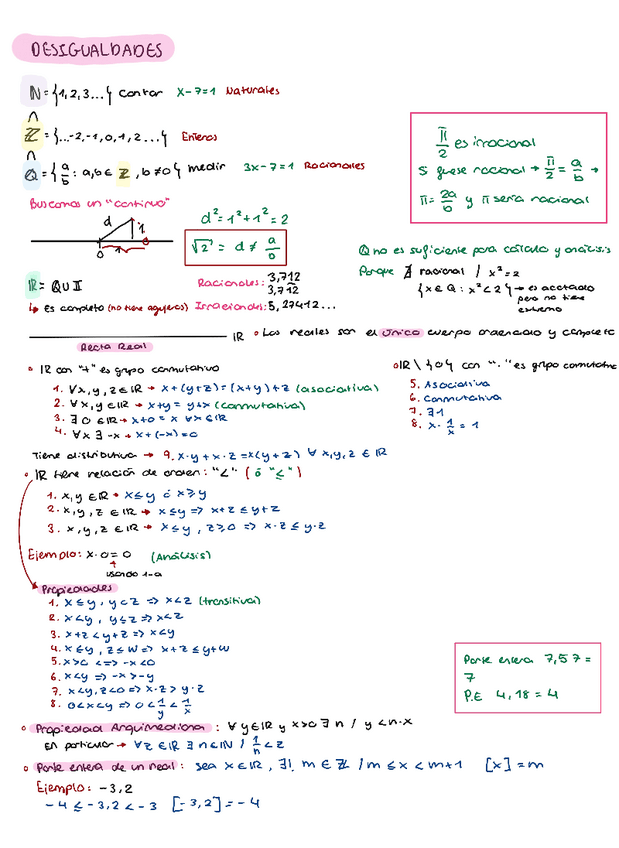 DESIGUALDADES
ℕ = {1,2,3...} contar x-7=1 Naturales
∩
ℤ = {...-2,-1,0,1,2...} Enteros
∩
ℚ = {a/b : a,b ∈ ℤ, b≠0} medir 3x-7=1 Racionales
π/2 es irracional
Si fuese racional → π/2 = a/b →
π = 2a/b y π sería racional
Buscamos un "continuo"
d 1 0 1
d² = 1² + 1² = 2
√2 = d ≠ a/b
ℚ no es suficiente para cálculo y análisis
Porque ∄ racional / x² = 2
{x ∈ ℚ : x² < 2} → es acotado
pero no tiene
extremo
ℝ = ℚ ∪ 𝕀
Racionales: 3,712
3,712
↳ es completo (no tiene agujeros) Irracionales: 5,27412...
ℝ
Recta Real
• Los reales son el único cuerpo ordenado y completo
• ℝ con "+" es grupo conmutativo
1. ∀x,y,z ∈ ℝ → x+(y+z)=(x+y)+z (asociativa)
2. ∀x,y ∈ ℝ → x+y = y+x (conmutativa)
3. ∃ 0 ∈ ℝ → x+0 = x ∀x ∈ ℝ
4. ∀x ∃ -x → x+(-x)=0
• ℝ \ {0} con "·" es grupo conmutativo
5. Asociativa
6. Conmutativa
7. ∃ 1
8. x · 1/x = 1
Tiene distributiva → 9. x·y + x·z = x(y+z) ∀ x,y,z ∈ ℝ
• ℝ tiene relación de orden: "<" (ó "≤")
1. x,y ∈ ℝ → x≤y ó x≥y
2. x,y,z ∈ ℝ → x≤y => x+z ≤ y+z
3. x,y,z ∈ ℝ → x≤y, z≥0 => x·z ≤ y·z
Ejemplo: x·0=0 (Análisis)
↑
usando 1-9
Propiedades
1. x≤y, y<z => x<z (transitiva)
2. x<y, y≤z => x<z
3. x+z<y+z => x<y
4. x≤y, z≤w => x+z ≤ y+w
5. x>0 <=> -x<0
6. x<y => -x>-y
7. x<y, z<0 => x·z > y·z
8. 0<x<y => 0 < 1/y < 1/x
Parte entera 7,57 =
7
P.E 4,18 = 4
• Propiedad Arquimediana: ∀ y ∈ ℝ y x>0 ∃ n / y < n·x
En particular → ∀z ∈ ℝ ∃ n ∈ ℕ / 1/n < z
• Parte entera de un real: sea x ∈ ℝ, ∃! m ∈ ℤ / m ≤ x < m+1 [x] = m
Ejemplo: -3,2
-4 ≤ -3,2 < -3 [-3,2] = -4